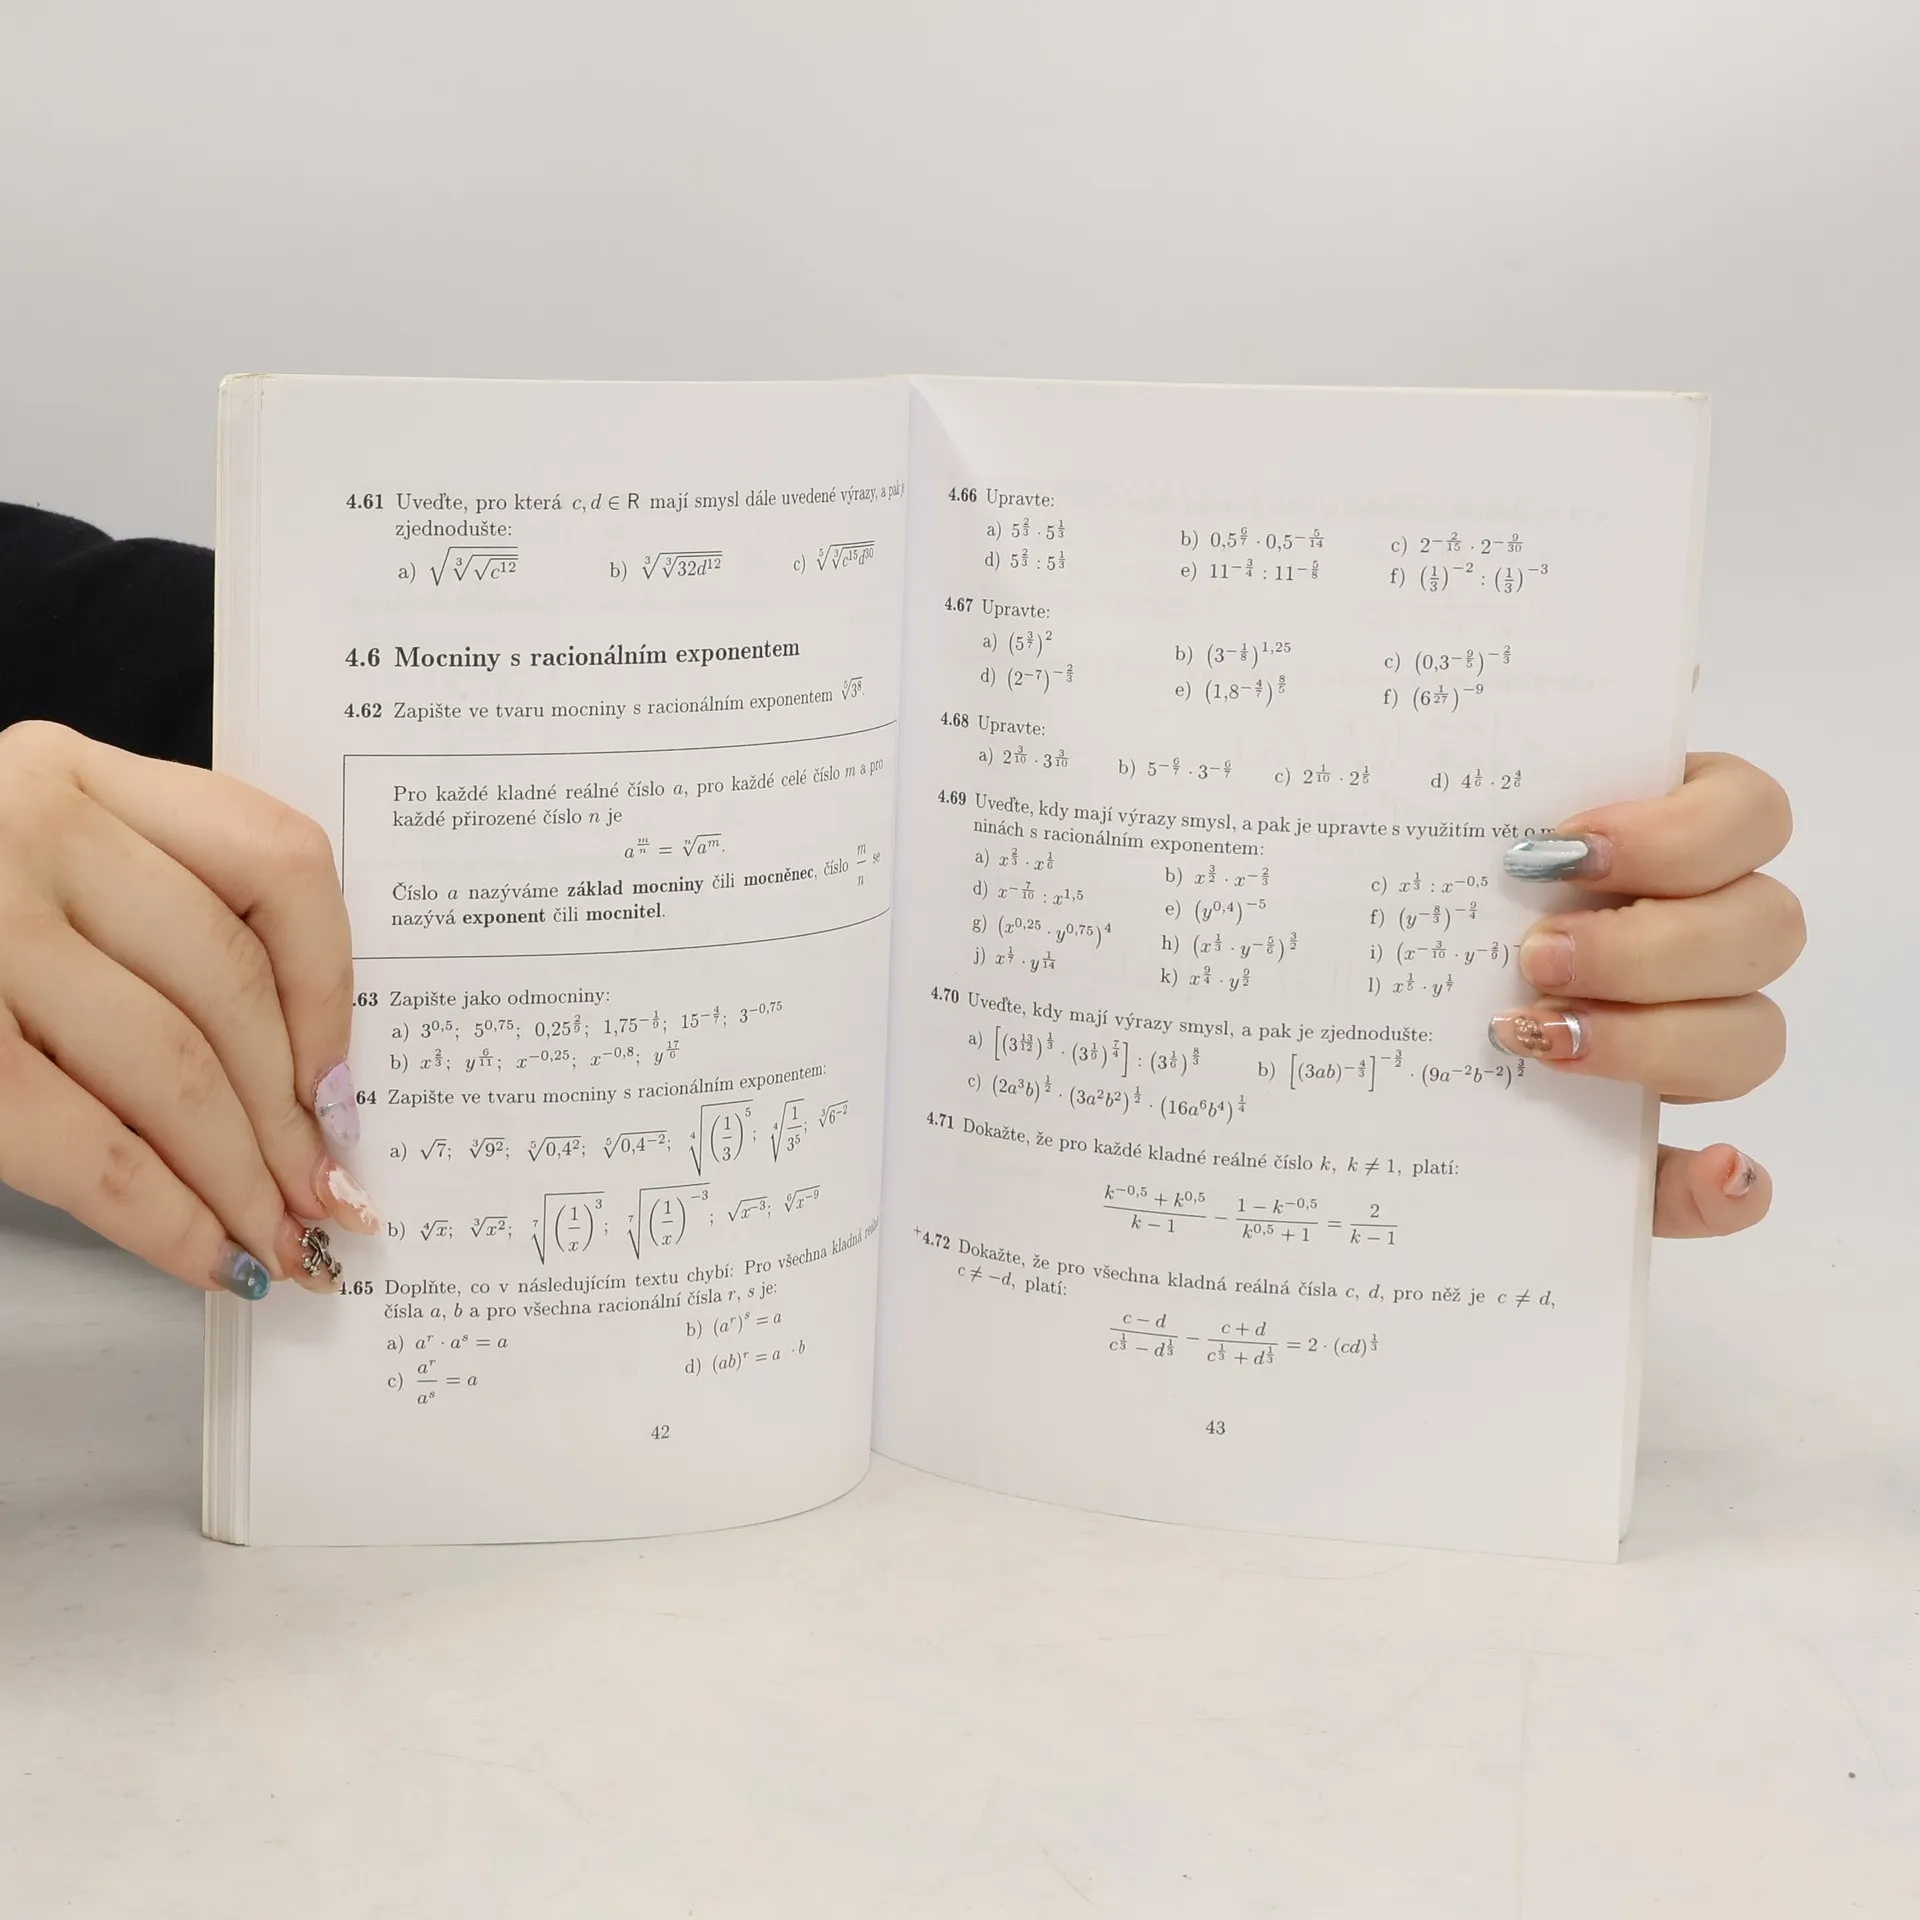 4.61 Uveďte, pro která c, d ∈ R mají smysl dále uvedené výrazy, a pak je
zjednodušte:
a) √(∛(√(c¹²))) b) ∛(∛(32d¹²)) c) ⁵√(∛(c¹⁵d³⁰))
4.6 Mocniny s racionálním exponentem
4.62 Zapište ve tvaru mocniny s racionálním exponentem ⁵√(3⁸).
Pro každé kladné reálné číslo a, pro každé celé číslo m a pro
každé přirozené číslo n je
a^(m/n) = ⁿ√(aᵐ).
Číslo a nazýváme základ mocniny čili mocněnec, číslo m/n se
nazývá exponent čili mocnitel.
.63 Zapište jako odmocniny:
a) 3^(0,5); 5^(0,75); 0,25^(2/9); 1,75^(−1/9); 15^(−4/7); 3^(−0,75)
b) x^(2/3); y^(6/11); x^(−0,25); x^(−0,8); y^(17/6)
64 Zapište ve tvaru mocniny s racionálním exponentem:
a) √7; ∛(9²); ⁵√(0,4²); ⁵√(0,4⁻²); ⁴√((1/3)⁵); ⁴√(1/3⁵); ∛(6⁻²)
b) ⁴√x; ∛(x²); ⁷√((1/x)³); ⁷√((1/x)⁻³); √(x⁻³); ⁶√(x⁻⁹)
4.65 Doplňte, co v následujícím textu chybí: Pro všechna kladná
čísla a, b a pro všechna racionální čísla r, s je:
a) aʳ · aˢ = a b) (aʳ)ˢ = a
c) aʳ/aˢ = a d) (ab)ʳ = a · b
42
4.66 Upravte:
a) 5^(2/3) · 5^(1/3) b) 0,5^(6/7) · 0,5^(−5/14) c) 2^(−2/15) · 2^(−9/30)
d) 5^(2/3) : 5^(1/3) e) 11^(−3/4) : 11^(−5/8) f) (1/3)⁻² : (1/3)⁻³
4.67 Upravte:
a) (5^(3/7))² b) (3^(−1/8))^(1,25) c) (0,3^(−9/5))^(−2/3)
d) (2⁻⁷)^(−2/3) e) (1,8^(−4/7))^(8/5) f) (6^(1/27))⁻⁹
4.68 Upravte:
a) 2^(3/10) · 3^(3/10) b) 5^(−6/7) · 3^(−6/7) c) 2^(1/10) · 2^(1/5) d) 4^(1/6) · 2^(4/6)
4.69 Uveďte, kdy mají výrazy smysl, a pak je upravte s využitím vět o
ninách s racionálním exponentem:
a) x^(2/3) · x^(1/6) b) x^(3/2) · x^(−2/3) c) x^(1/3) : x^(−0,5)
d) x^(−7/10) : x^(1,5) e) (y^(0,4))⁻⁵ f) (y^(−8/3))^(−9/4)
g) (x^(0,25) · y^(0,75))⁴ h) (x^(1/3) · y^(−5/6))^(3/2) i) (x^(−3/10) · y^(−2/9))
j) x^(1/7) · y^(1/14) k) x^(9/4) · y^(9/2) l) x^(1/5) · y^(1/7)
4.70 Uveďte, kdy mají výrazy smysl, a pak je zjednodušte:
a) [(3^(13/12))^(1/3) · (3^(1/6))^(7/4)] : (3^(1/6))^(8/3) b) [(3ab)^(−4/3)]^(−3/2) · (9a⁻²b⁻²)^(3/2)
c) (2a³b)^(1/2) · (3a²b²)^(1/2) · (16a⁶b⁴)^(1/4)
4.71 Dokažte, že pro každé kladné reálné číslo k, k ≠ 1, platí:
(k^(−0,5) + k^(0,5))/(k − 1) − (1 − k^(−0,5))/(k^(0,5) + 1) = 2/(k − 1)
+4.72 Dokažte, že pro všechna kladná reálná čísla c, d, pro něž je c ≠ d,
c ≠ −d, platí:
(c − d)/(c^(1/3) − d^(1/3)) − (c + d)/(c^(1/3) + d^(1/3)) = 2 · (cd)^(1/3)
43